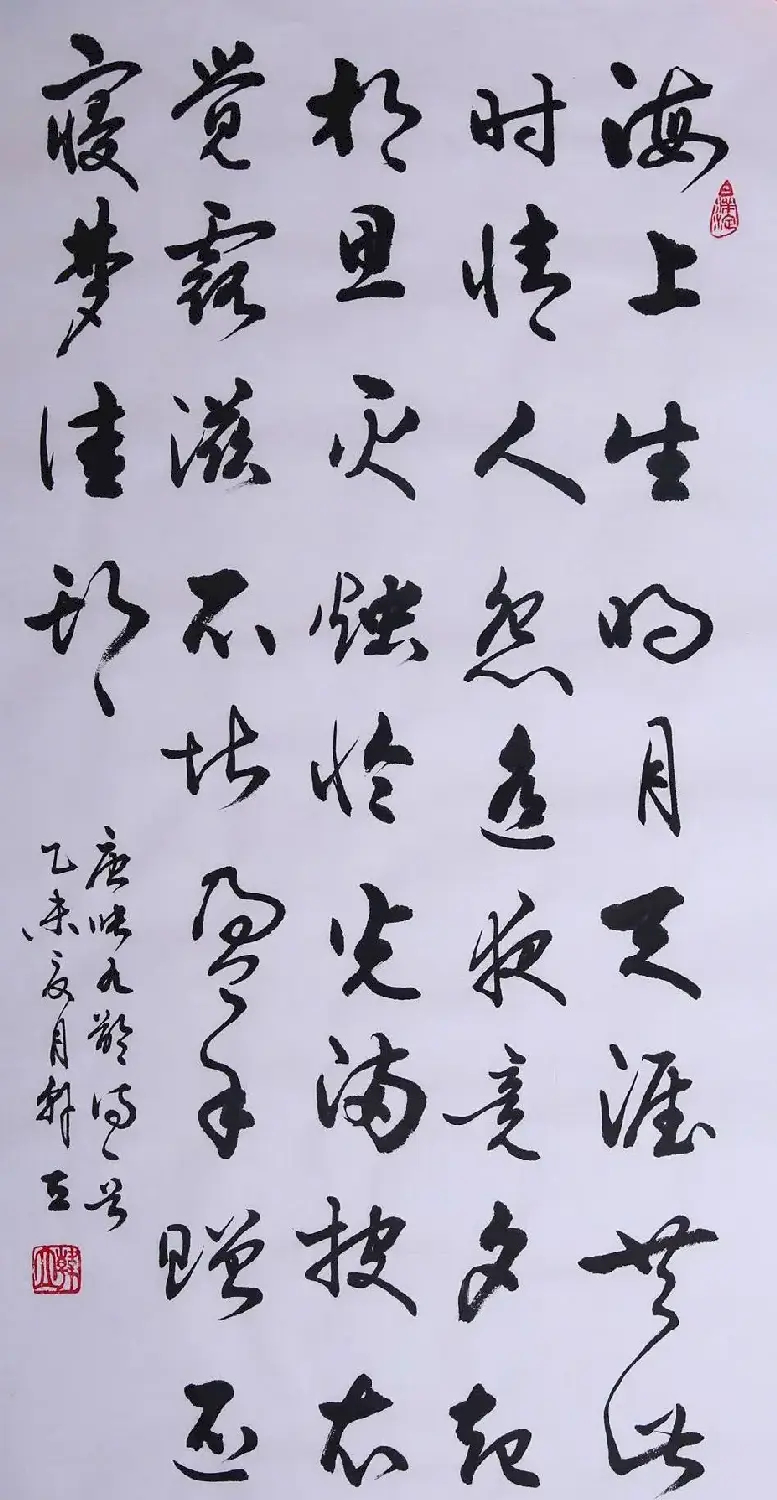 海上生明月天涯共此
时情人怨遥夜竟夕起
相思灭烛怜光满披衣
觉露滋不堪盈手赠还
寝梦佳期
唐张九龄诗一首
乙未夏月韩立